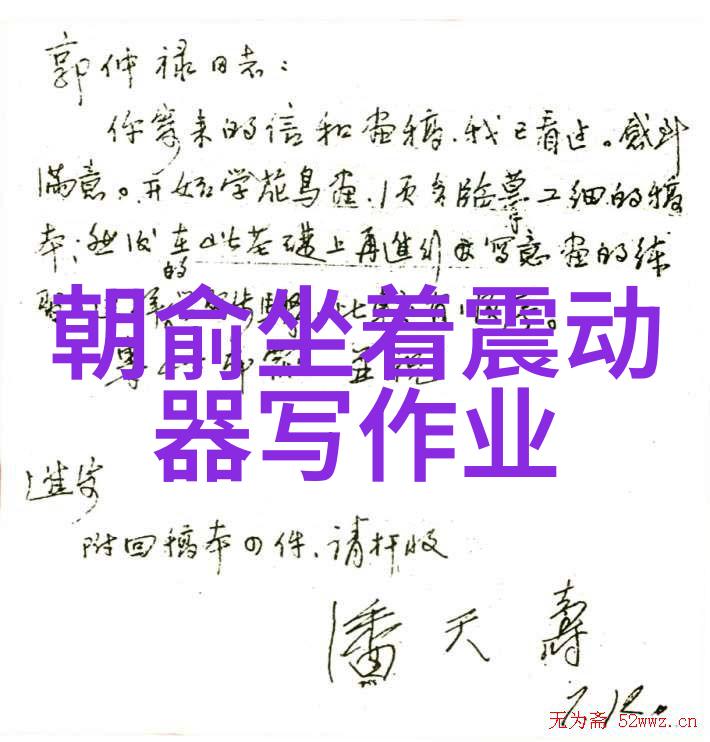 郭仲禄同志：
你寄来的信和画稿，我已看过。感到
满意。开始学花鸟画，须多临摹工细的稿
本；然后在此基础上再进行写意画的练
的
朝俞坐着震动
器写作业
进安
附回稿本四件，请检收
潘天寿
7.12.
无为斋 52wwz.cn